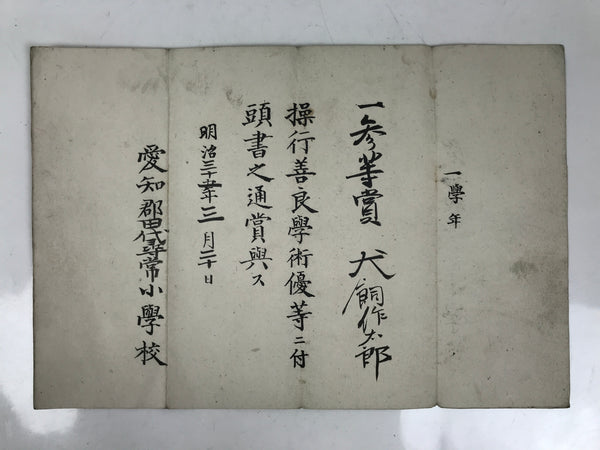 一學年
一参等賞 犬飼作太郎
操行善良學術優等ニ付
頭書之通賞與ス
明治三十五年三月二十日
愛知郡田代尋常小學校